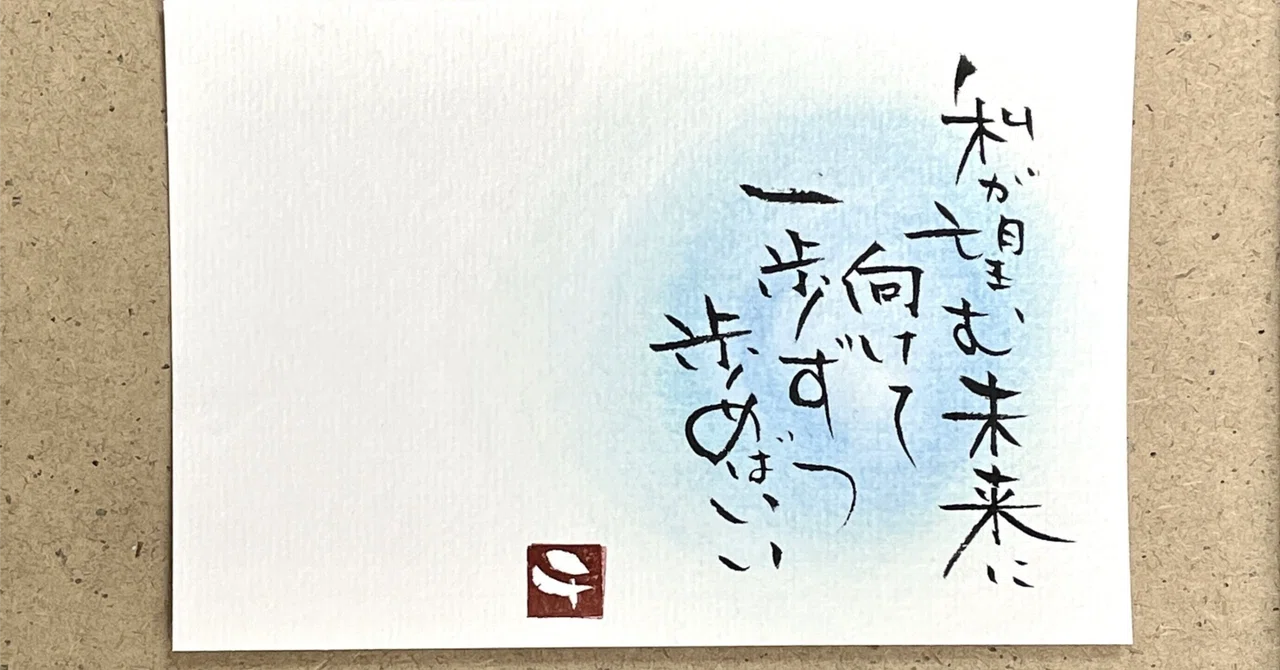 私が望む未来に
向けて
一歩ずつ
歩めばいい